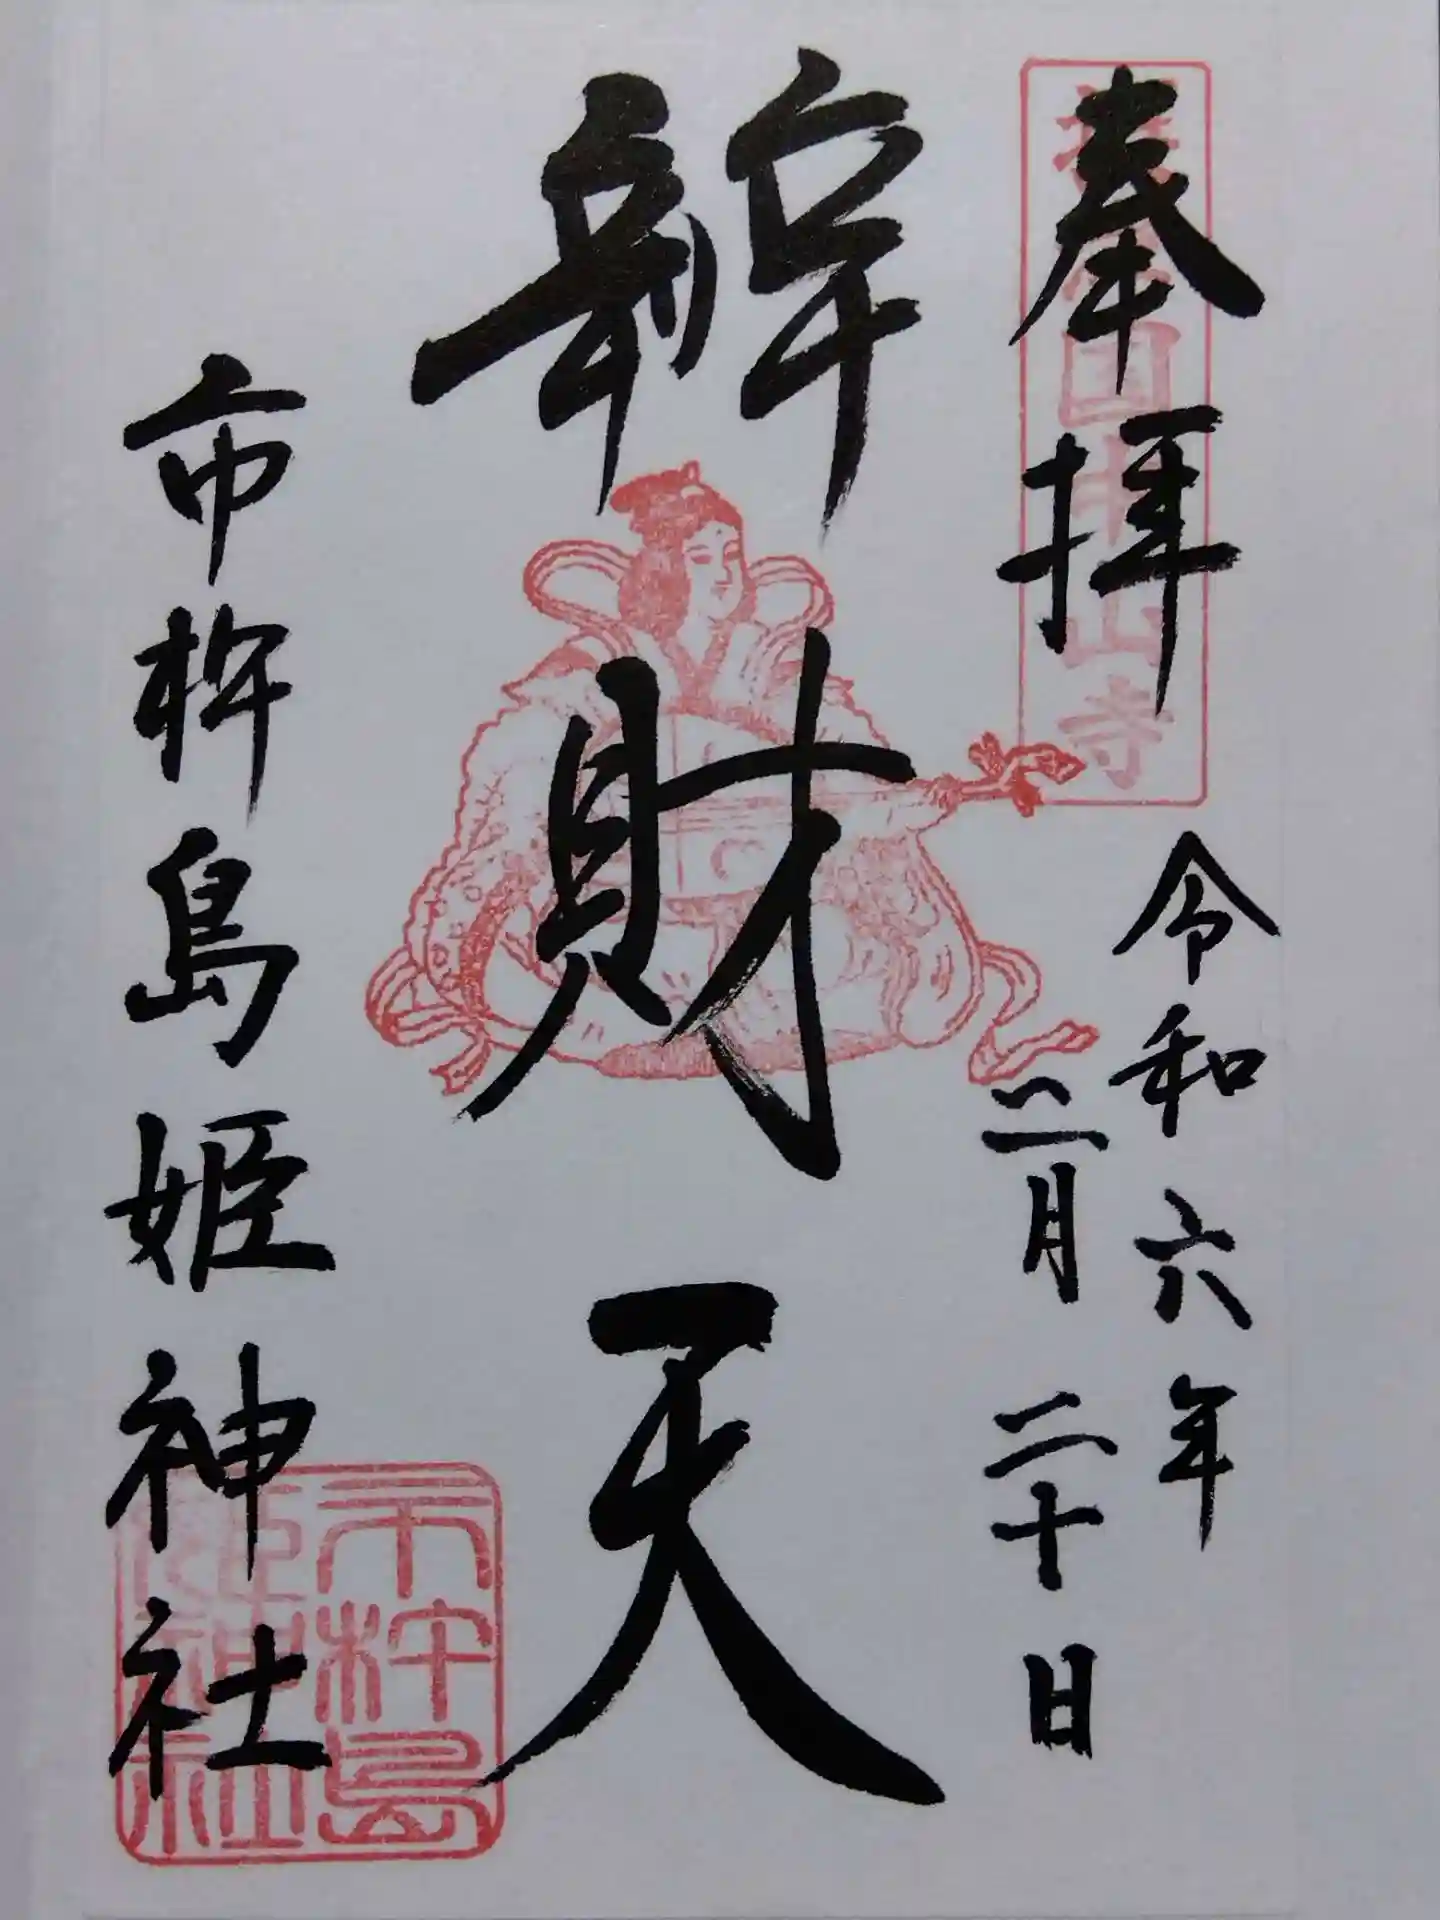 奉拝
国中山寺
令和六年
三月二十日
辨財天
市杵島姫神社
市杵島
姫神社